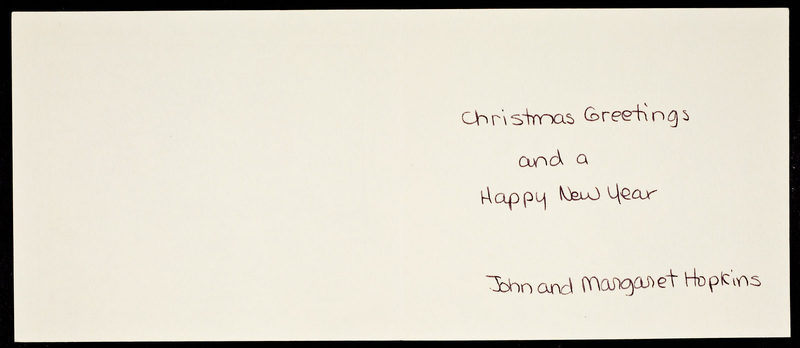 Christmas Greetings
and a
Happy New Year
John and Margaret Hopkins